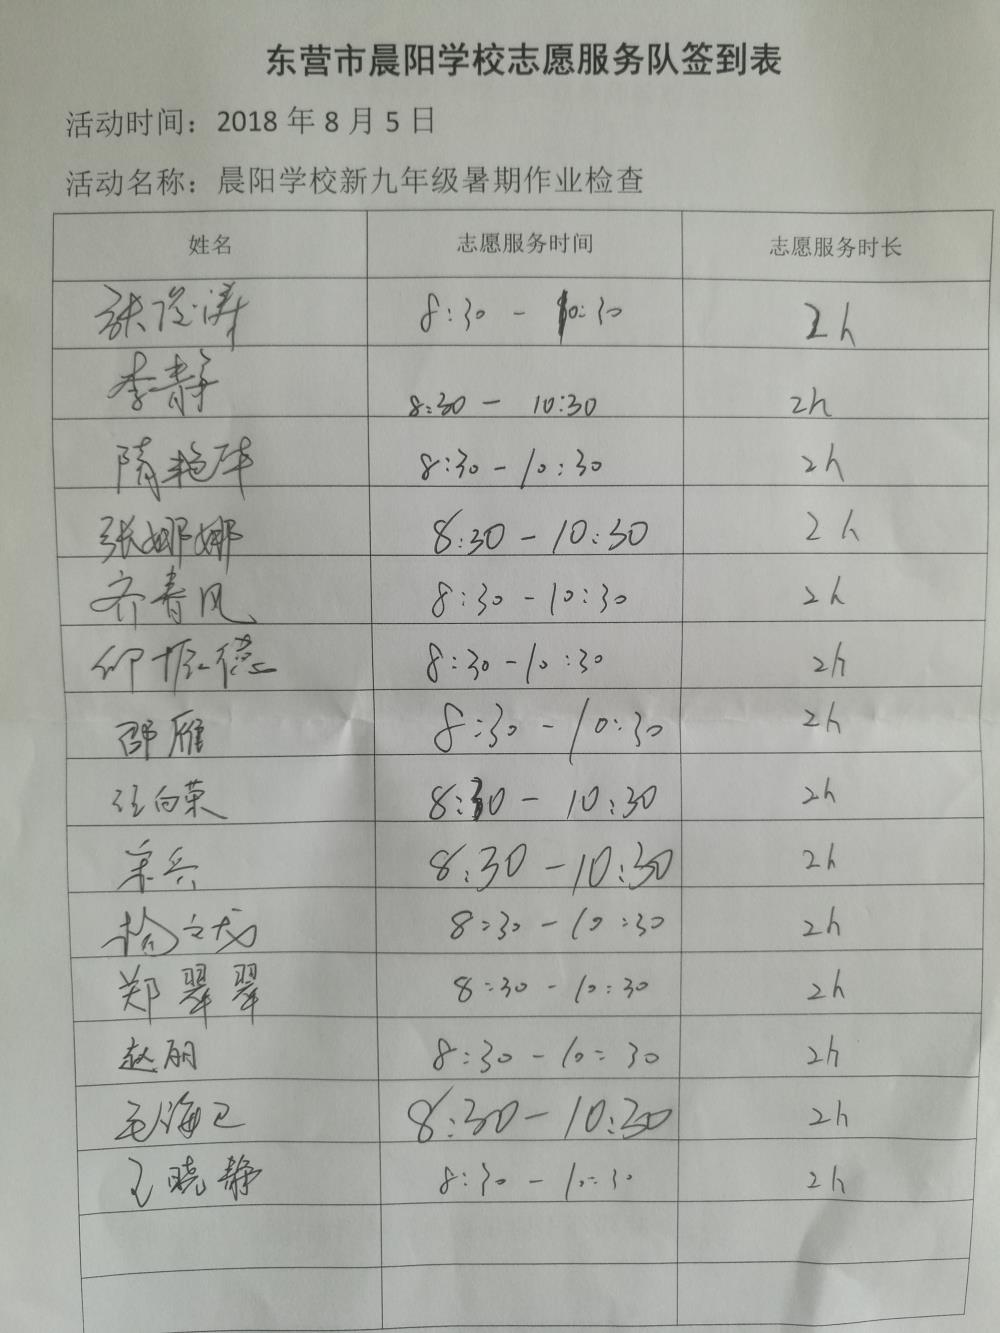 东营市晨阳学校志愿服务队签到表
活动时间：2018 年 8 月 5 日
活动名称：晨阳学校新九年级暑期作业检查
姓名 志愿服务时间 志愿服务时长
张俊涛 8:30 - 10:30 2h
李静 8:30 - 10:30 2h
隋艳华 8:30 - 10:30 2h
张娜娜 8:30 - 10:30 2h
齐春风 8:30 - 10:30 2h
8:30 - 10:30 2h
邵雁 8:30 - 10:30 2h
任向荣 8:30 - 10:30 2h
宋兵 8:30 - 10:30 2h
杨文龙 8:30 - 10:30 2h
郑翠翠 8:30 - 10:30 2h
赵丽 8:30 - 10:30 2h
毛海卫 8:30 - 10:30 2h
王晓静 8:30 - 10:30 2h